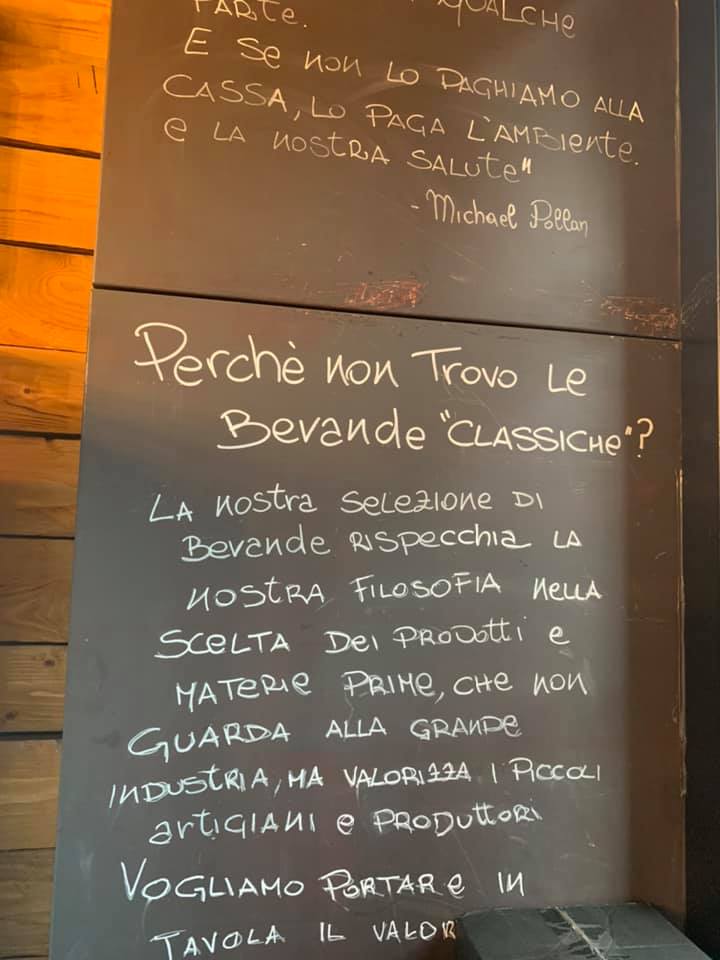 PARTE. QUALCHE
E SE NON LO PAGHIAMO ALLA
CASSA, LO PAGA L'AMBIENTE.
E LA NOSTRA SALUTE"
- Michael Pollan
Perchè non Trovo Le
Bevande "CLASSICHE"?
LA nostra SELEZIONE DI
Bevande RISPECCHIA LA
NOSTRA FILOSOFIA NELLA
SCELTA DEI PRODOTTI E
MATERIE PRIME, CHE NON
GUARDA ALLA GRANDE
INDUSTRIA, MA VALORIZZA I PICCOLI
ARTIGIANI E PRODUTTORI
VOGLIAMO PORTARE IN
TAVOLA IL VALOR